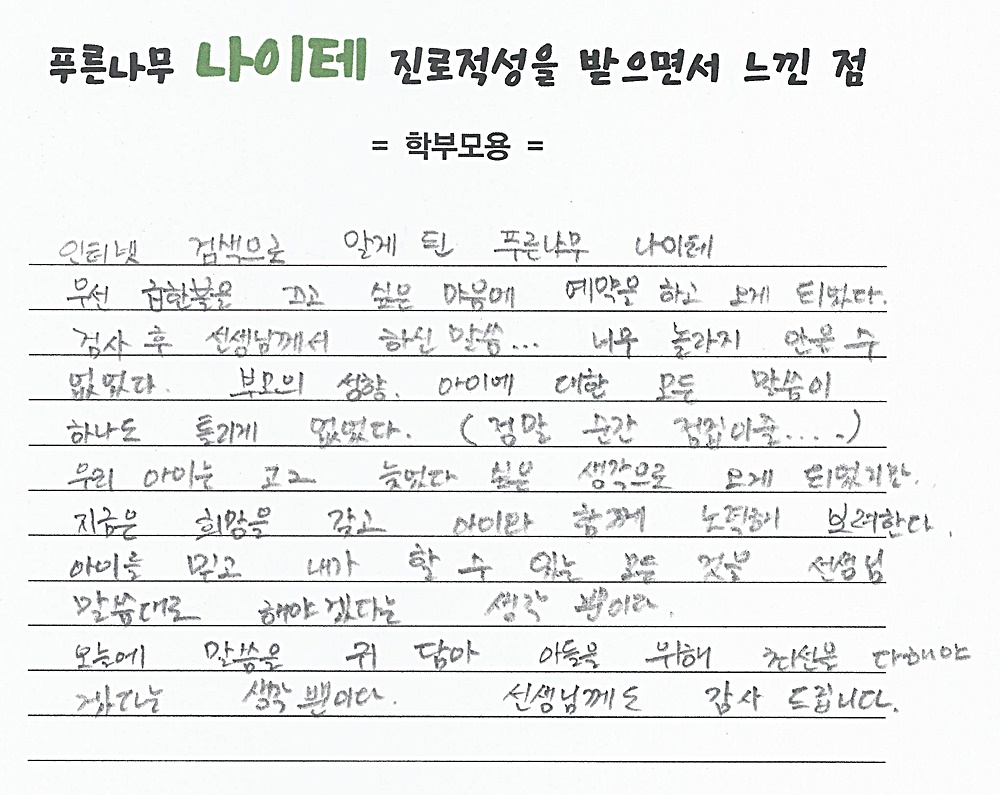 푸른나무 나이테 진로적성을 받으면서 느낀 점
= 학부모용 =
인터넷 검색으로 알게 된 푸른나무 나이테
우선 급한불을 끄고 싶은 마음에 예약을 하고 오게 되었다.
검사 후 선생님께서 하신 말씀... 너무 놀라지 안을 수
없었다. 부모의 성향, 아이에 대한 모든 말씀이
하나도 틀리게 없었다. (정말 순간 점집아줄.....)
우리 아이는 고2 늦었다 싶은 생각으로 오게 되었지만.
지금은 희망을 갖고 아이와 함께 노력해 보려한다.
아이를 믿고 내가 할 수 있는 모든 것을 선생님
말씀대로 해야겠다는 생각 뿐이다.
오늘에 말씀을 귀 담아 아들을 위해 최선을 다해야
겠다는 생각 뿐이다. 선생님께도 감사 드립니다.